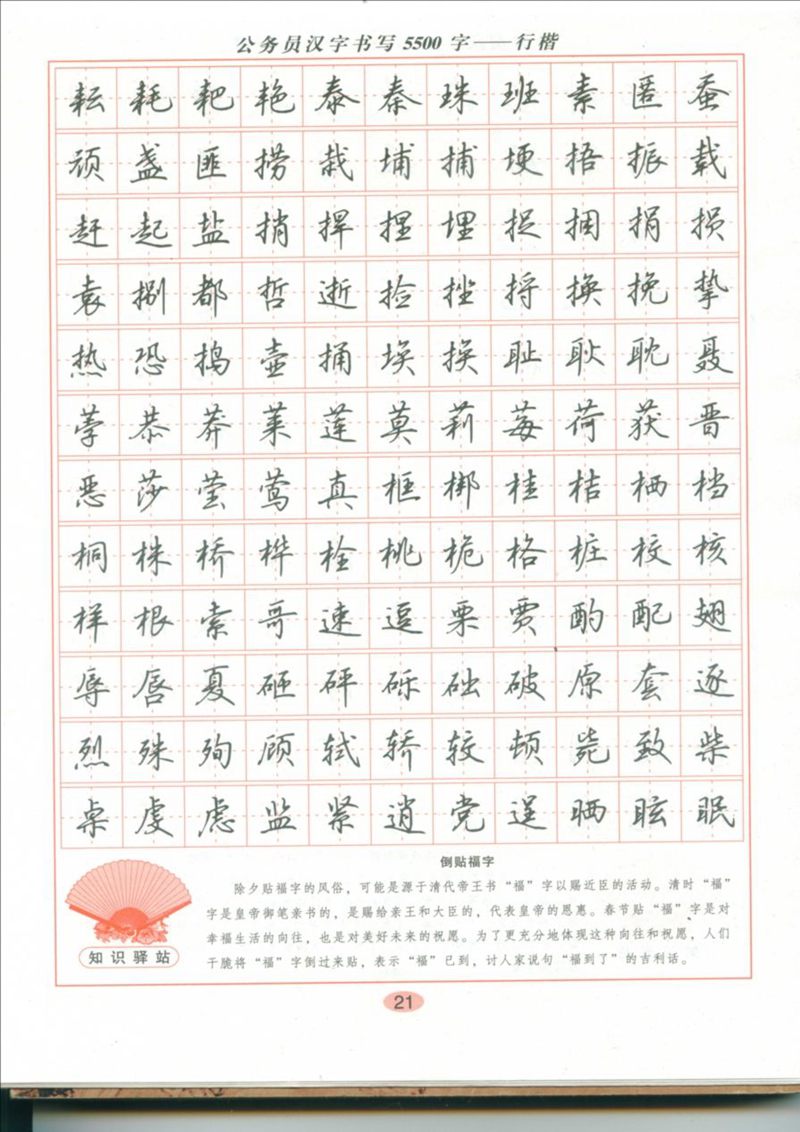 公务员汉字书写5500字——行楷
耘耗耙艳泰秦珠班素匿蚕
顽盏匪捞栽埔捕埂捂振载
赶起盐捎捍捏埋捉捆捐损
袁捌都哲逝捡挫捋换挽挚
热恐捣壶捅埃挨耻耿耽聂
荸恭莽莱莲莫莉莓荷获晋
恶莎莹莺真框梆桂桔栖档
桐株桥桦栓桃桅格桩校核
样根索哥速逗栗贾酌配翅
辱唇夏砸砰砾础破原套逐
烈殊殉顾轼轿较顿毙致柴
桌虔虑监紧逍党逞晒眩眠
倒贴福字
除夕贴福字的风俗，可能是源于清代帝王书“福”字以赐近臣的活动。清时“福”
字是皇帝御笔亲书的，是赐给亲王和大臣的，代表皇帝的恩惠。春节贴“福”字是对
幸福生活的向往，也是对美好未来的祝愿。为了更充分地体现这种向往和祝愿，人们
干脆将“福”字倒过来贴，表示“福”已到，讨人家说句“福到了”的吉利话。
知识驿站
21